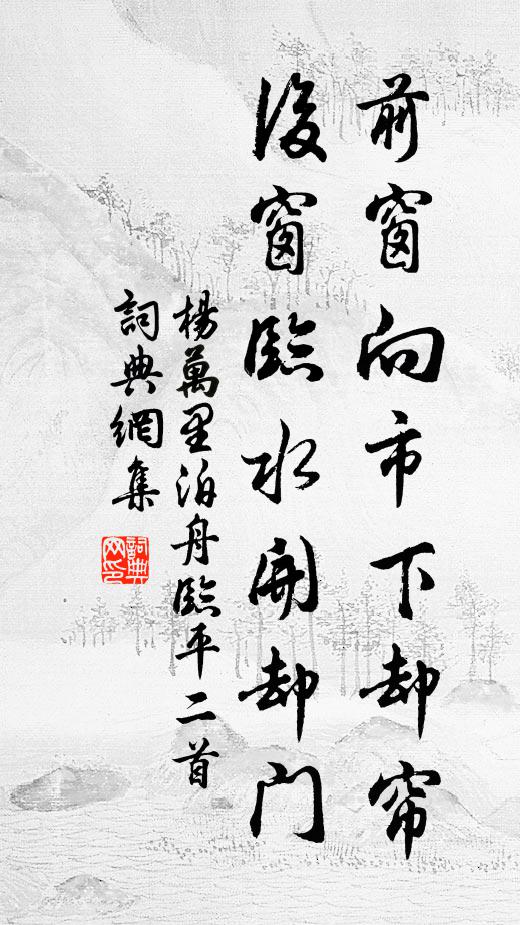 前窗向市下却帘
後窗臨水開却門
楊萬里泊舟臨平二首
詞典網集
詞典網印